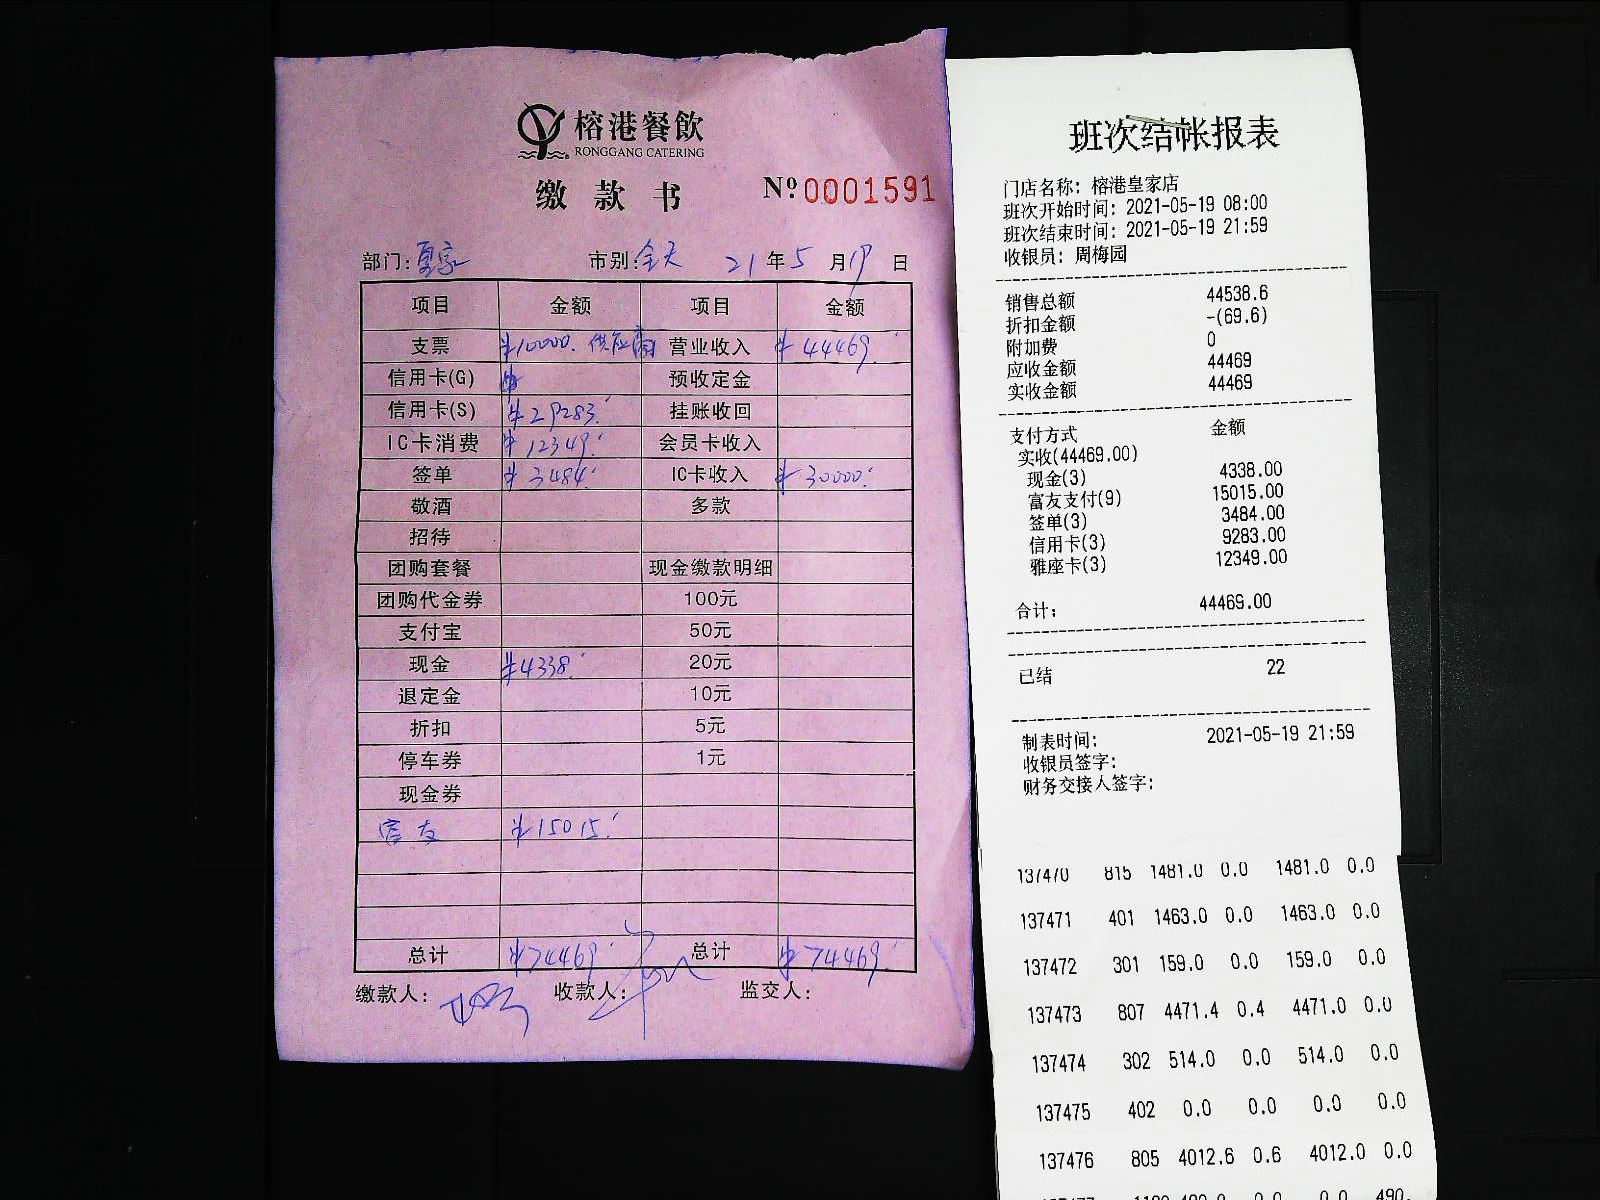 榕港餐飲
RONGGANG CATERING
缴款书
Nº 0001591
部门: 市别:全天 21年5月19日
项目 金额 项目 金额
支票 ¥10000. 供应商 营业收入 ¥44469.
信用卡(G) 预收定金
信用卡(S) ¥29283. 挂账收回
IC卡消费 ¥12349. 会员卡收入
签单 ¥3484. IC卡收入 ¥30000.
敬酒 多款
招待
团购套餐 现金缴款明细
团购代金券 100元
支付宝 50元
现金 ¥4338. 20元
退定金 10元
折扣 5元
停车券 1元
现金券
富友 ¥15015.
总计 ¥74469. 总计 ¥74469.
缴款人: 收款人: 监交人:
班次结帐报表
门店名称: 榕港皇家店
班次开始时间: 2021-05-19 08:00
班次结束时间: 2021-05-19 21:59
收银员: 周梅园
销售总额 44538.6
折扣金额 -(69.6)
附加费 0
应收金额 44469
实收金额 44469
支付方式 金额
实收(44469.00)
现金(3) 4338.00
富友支付(9) 15015.00
签单(3) 3484.00
信用卡(3) 9283.00
雅座卡(3) 12349.00
合计: 44469.00
已结 22
制表时间: 2021-05-19 21:59
收银员签字:
财务交接人签字:
137470 815 1481.0 0.0 1481.0 0.0
137471 401 1463.0 0.0 1463.0 0.0
137472 301 159.0 0.0 159.0 0.0
137473 807 4471.4 0.4 4471.0 0.0
137474 302 514.0 0.0 514.0 0.0
137475 402 0.0 0.0 0.0 0.0
137476 805 4012.6 0.6 4012.0 0.0